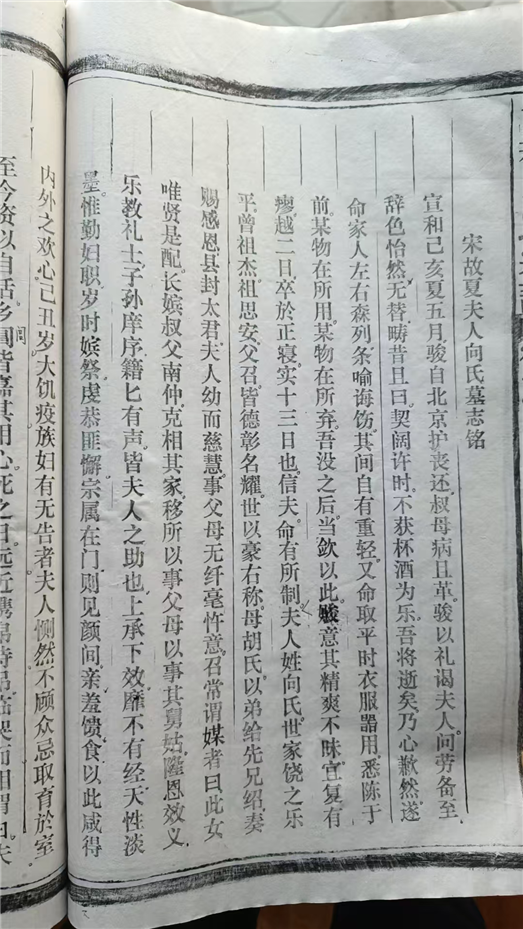 宋故夏夫人向氏墓志铭
宣和己亥夏五月，骏自北京护丧还，叔母病且革，骏以礼谒夫人，问劳备至，
辞色怡然，无替畴昔，且曰：契阔许时，不获杯酒为乐，吾将逝矣，乃心歉然。遂
命家人左右森列，条喻诲饬，其间自有重轻。又命取平时衣服器用悉陈于
前，某物在所用，某物在所弃，吾没之后，当敛以此。骏意其精爽不昧，宜复有
瘳，越二日，卒於正寝，实十三日也。信夫命有所制。夫人姓向氏，世家饶之乐
平。曾祖杰，祖思安，父召，皆德彰名耀，世以豪右称。母胡氏，以弟给先兄绍奏
赐感恩县封太君。夫人幼而慈慧，事父母无纤毫忤意。召常谓媒者曰：此女
唯贤是配。长嫔叔父南仲，克相其家，移所以事父母以事其舅姑，隆恩效义，
乐教礼士，子孙庠序籍匕有声，皆夫人之助也。上承下效，靡不有经。天性淡
墨，惟勤妇职，岁时嫔祭，虔恭匪懈。宗属在门，则见颜问，亲羞馈食，以此咸得
内外之欢心。己丑岁大饥疫，族妇有无告者，夫人恻然不顾众忌，取育於室，
至今资以自活，乡闾皆嘉其用心。死之日，远近